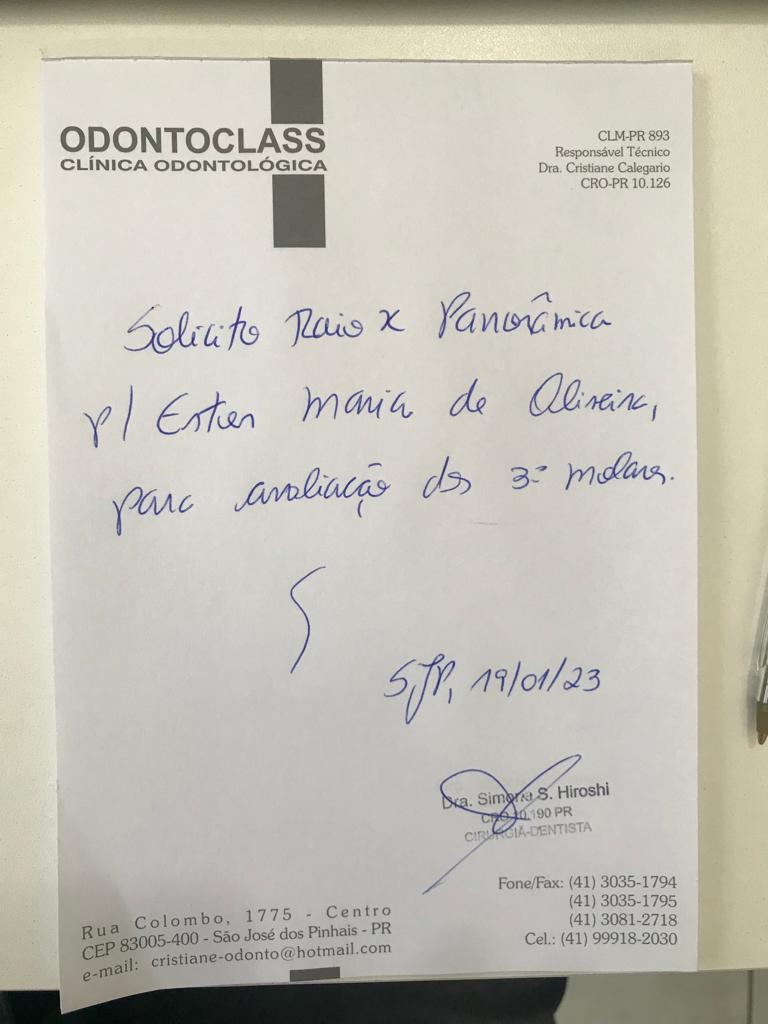 ODONTOCLASS
CLÍNICA ODONTOLÓGICA
CLM-PR 893
Responsável Técnico
Dra. Cristiane Calegario
CRO-PR 10.126
Solicito Raio X Panorâmica
p/ Ester Maria de Oliveira,
para avaliação dos 3º molares.
SJP, 19/01/23
Dra. Simone S. Hiroshi
CRO 10.190 PR
CIRURGIÃ-DENTISTA
Fone/Fax: (41) 3035-1794
(41) 3035-1795
(41) 3081-2718
Cel.: (41) 99918-2030
Rua Colombo, 1775 - Centro
CEP 83005-400 - São José dos Pinhais - PR
e-mail: cristiane-odonto@hotmail.com